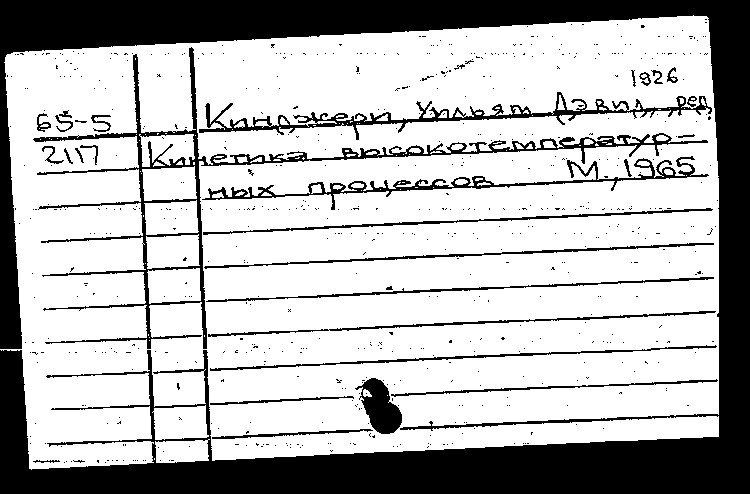 1926
65-5 Кинджери, Уильям Дэвид, ред.
2117 Кинетика высокотемператур-
ных процессов М., 1965